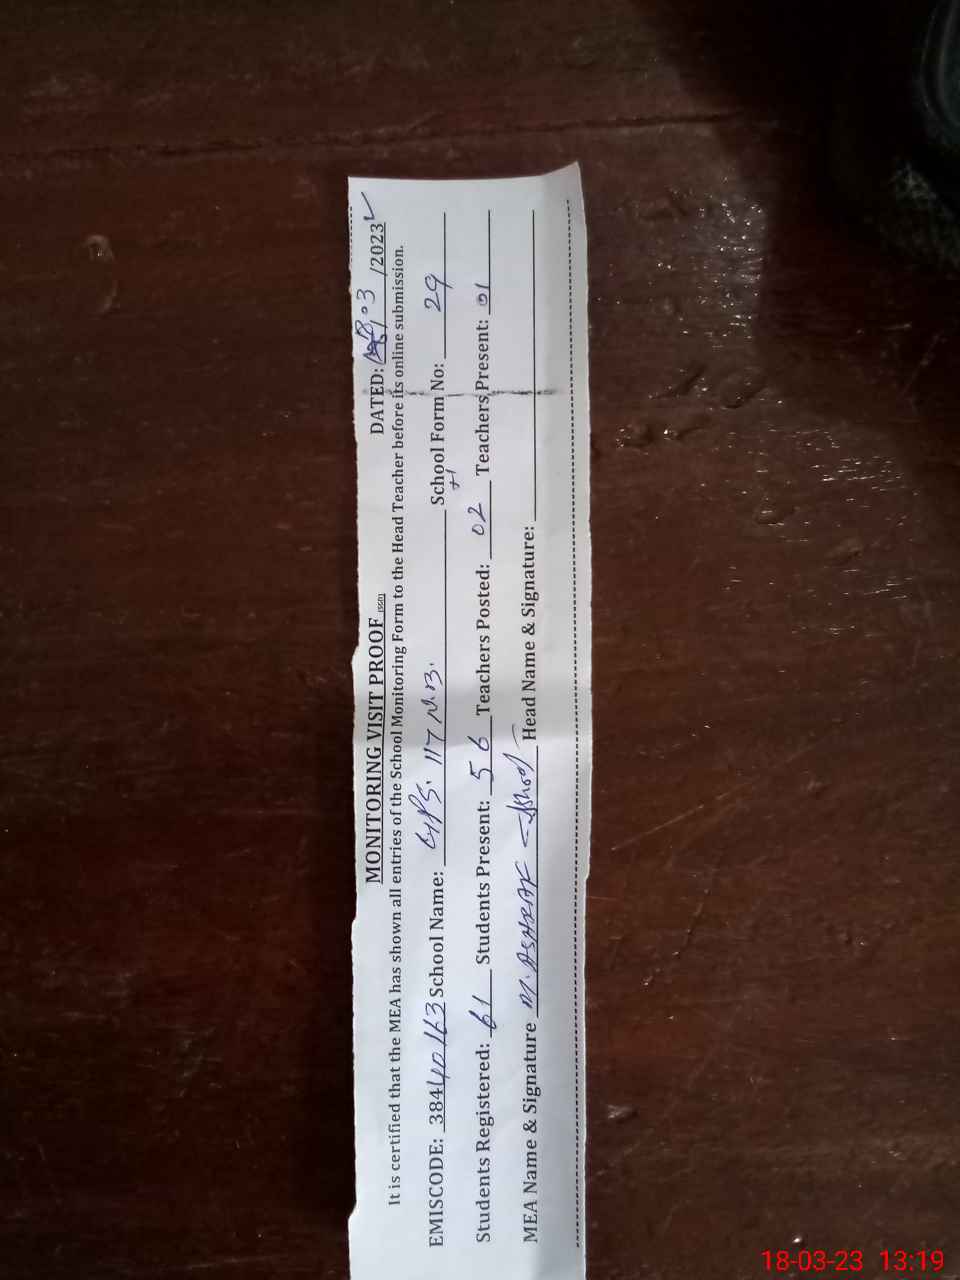 MONITORING VISIT PROOF (SSO) DATED: 18,03 /2023
It is certified that the MEA has shown all entries of the School Monitoring Form to the Head Teacher before its online submission.
EMISCODE: 38440163 School Name: GPS. 117 N.B. School Form No: 29
Students Registered: 61 Students Present: 56 Teachers Posted: 02 Teachers Present: 01
MEA Name & Signature M. ASHRAF Head Name & Signature:
18-03-23 13:19